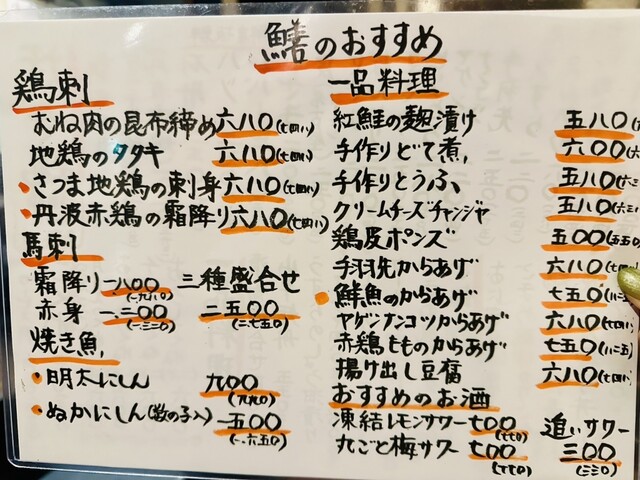 鱔のおすすめ
鶏刺
むね肉の昆布締め 六八〇(七四八)
地鶏のタタキ 六八〇(七四八)
・さつま地鶏の刺身 六八〇(七四八)
・丹波赤鶏の霜降り 六八〇(七四八)
馬刺
霜降り 一、八〇〇(一、九八〇) 三種盛合せ
赤身 一、二〇〇(一、三二〇) 二、五〇〇(二、七五〇)
焼き魚
・明太にしん 九〇〇(九九〇)
・ぬかにしん(数の子入) 一、五〇〇(一、六五〇)
一品料理
紅鮭の麹漬け 五八〇
手作りどて煮 六〇〇
手作りとうふ 五八〇
クリームチーズチャンジャ 五八〇
鶏皮ポンズ 五〇〇(五五〇)
手羽先からあげ 六八〇
・鮮魚のからあげ 七五〇
ヤゲンナンコツからあげ 六八〇(七四八)
赤鶏もものからあげ 七五〇(八二五)
揚げ出し豆腐 六八〇(七四八)
おすすめのお酒
凍結レモンサワー 七〇〇(七七〇) 追いサワー
丸ごと梅サワー 七〇〇(七七〇) 三〇〇(三三〇)